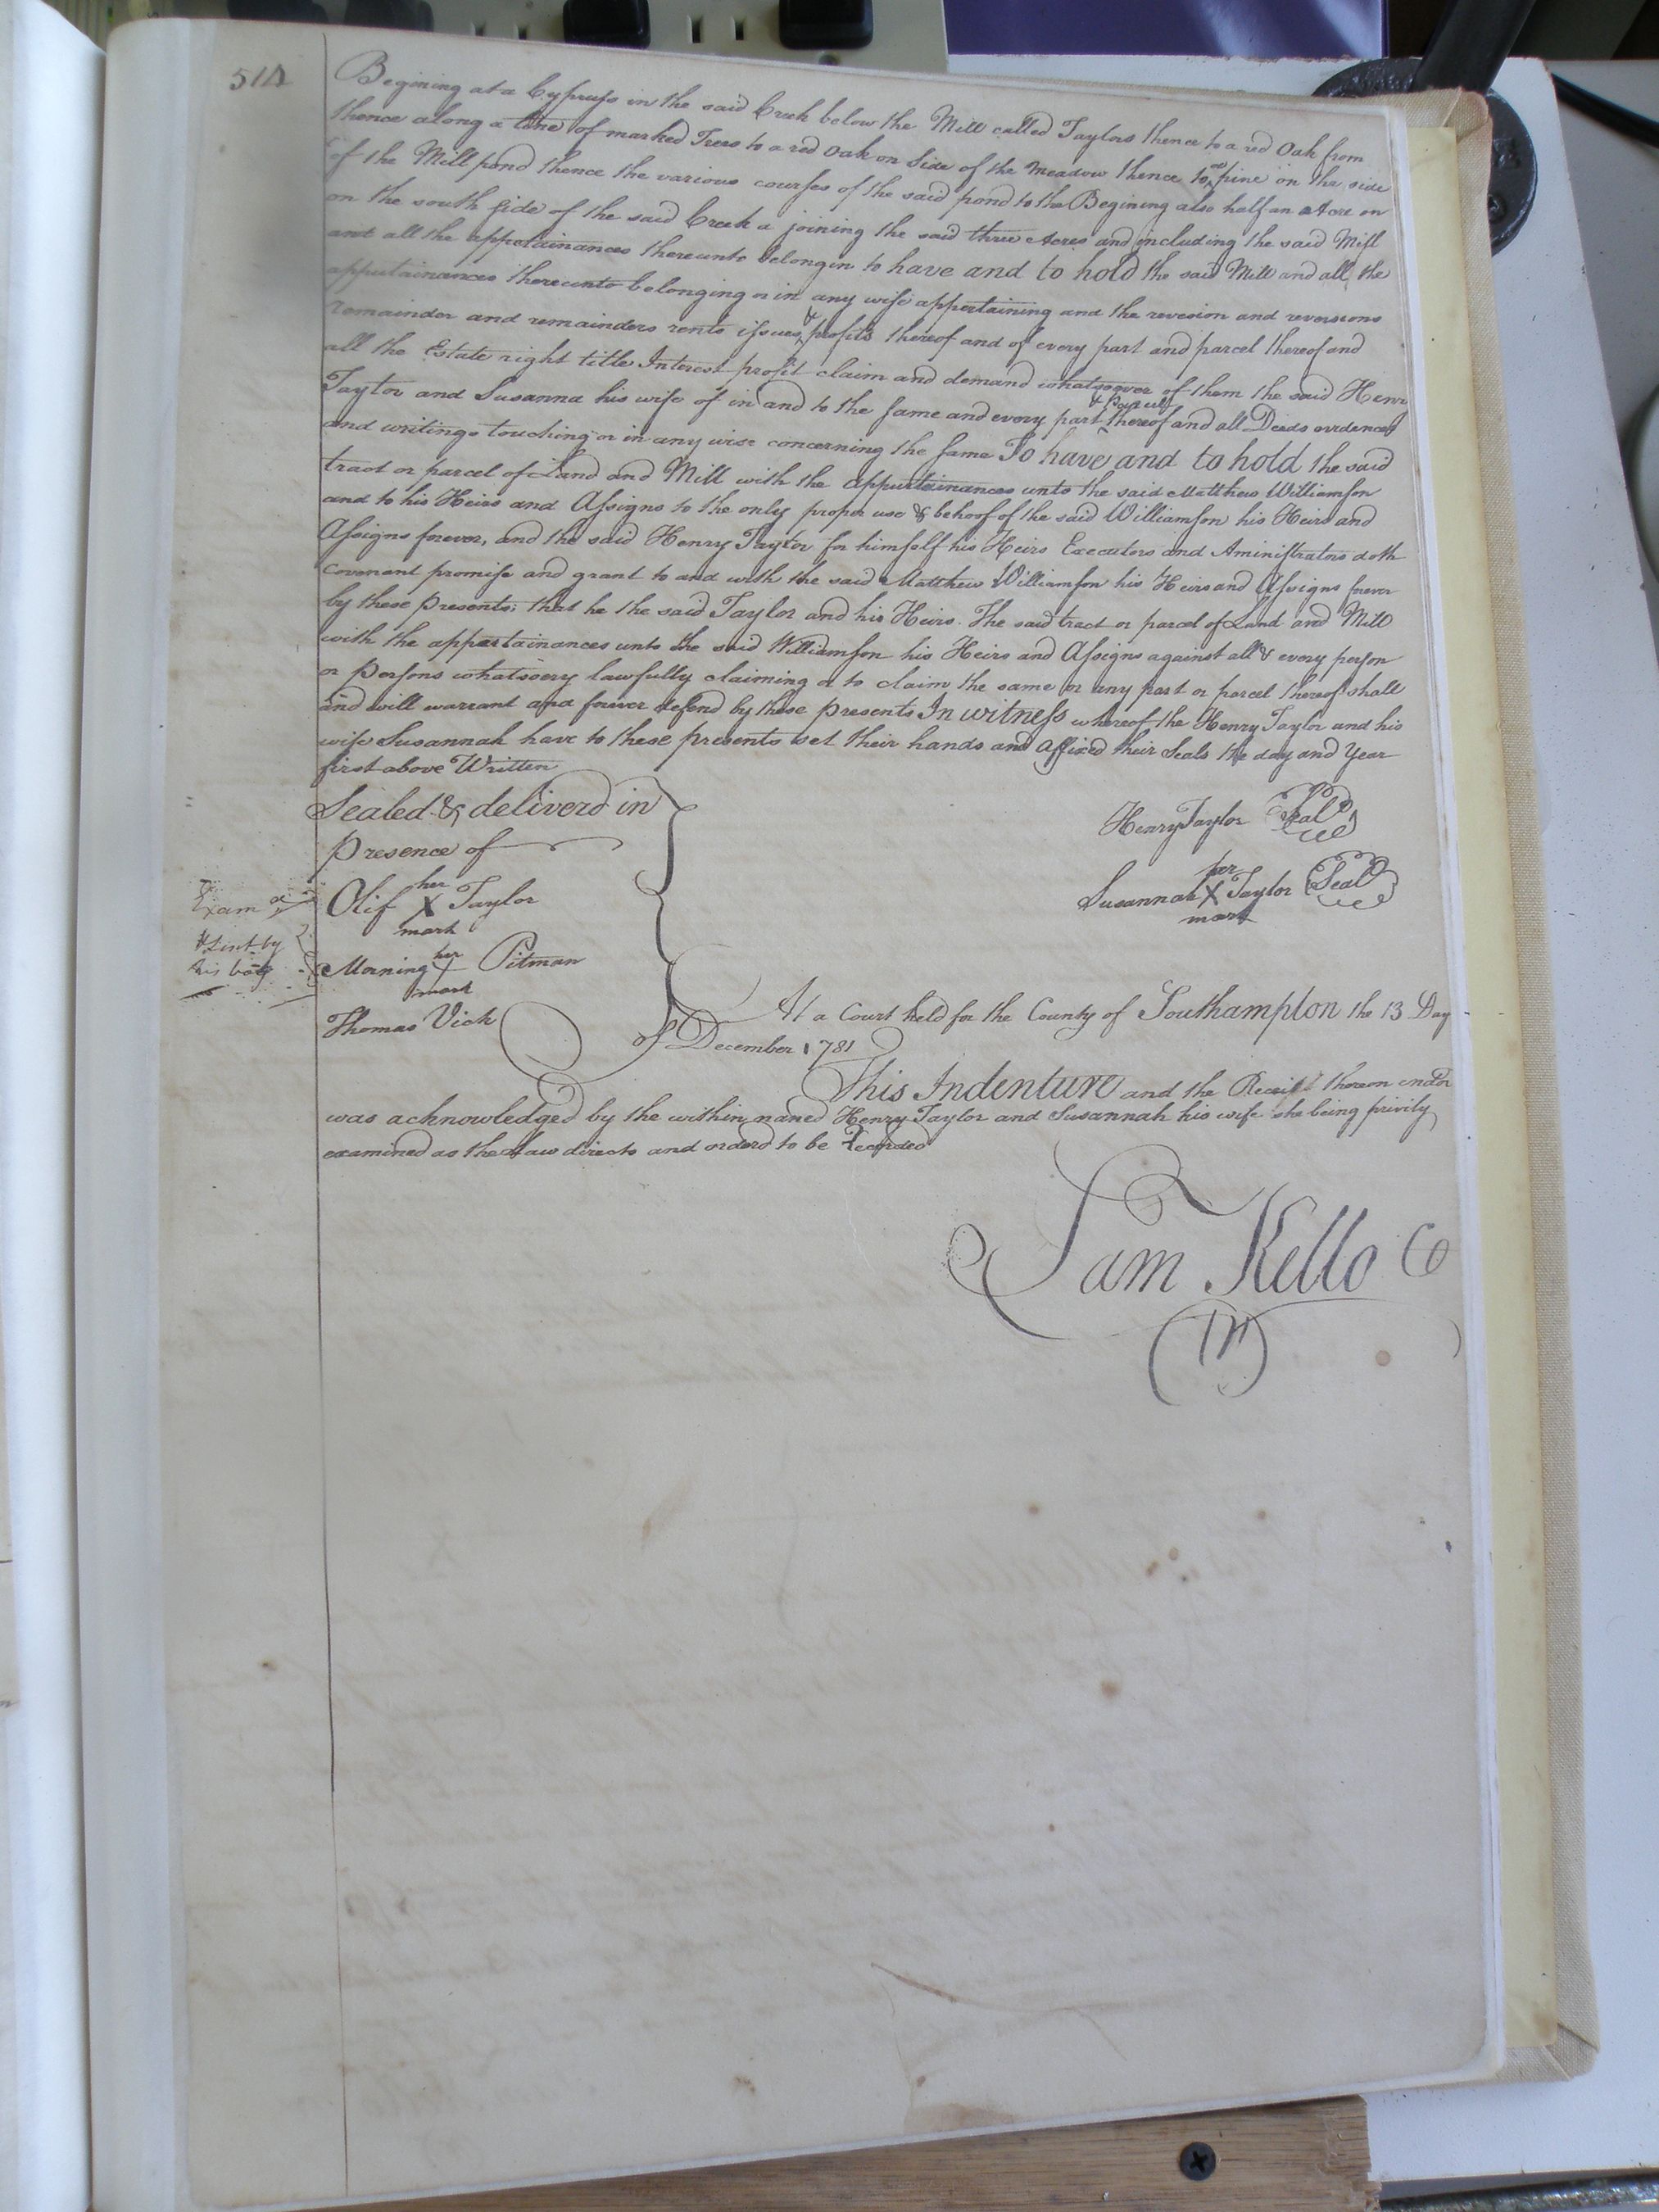 514
Begining at a Cypress in the said Creek below the Mill called Taylors thence to a red Oak from
thence along a line of marked Trees to a red Oak on Side of the meadow thence to a pine on the side
of the Mill pond thence the various courses of the said pond to the Begining also half an Acre on
on the south side of the said Creek a joining the said three Acres and including the said Mill
and all the appertainances thereunto belongin to have and to hold the said Mill and all the
appurtainances thereunto belonging or in any wise appertaining and the revesion and reversions
remainder and remainders rents issues & profits thereof and of every part and parcel thereof and
all the Estate right title Interest profit claim and demand whatsoever of them the said Henry
Taylor and Susanna his wife of in and to the same and every part & Parcel thereof and all Deeds evidences
and writings touching or in any wise concerning the same To have and to hold the said
tract or parcel of Land and Mill with the appurtainances unto the said Matthew Williamson
and to his Heirs and Assigns to the only proper use & behoof of the said Williamson his Heirs and
Assigns forever, and the said Henry Taylor for himself his Heirs Executors and Aministrators doth
covenant promise and grant to and with the said Matthew Williamson his Heirs and Assigns forever
by these presents; that he the said Taylor and his Heirs. The said tract or parcel of Land and Mill
with the appertainances unto the said Williamson his Heirs and Assigns against all & every person
or Persons whatsoevery lawfully claiming or to claim the same or any part or parcel thereof shall
and will warrant and forever defend by these presents In witness whereof the Henry Taylor and his
wife Susannah have to these presents set their hands and affixed their Seals the day and Year
first above Written
Sealed & deliverd in
presence of
Henry Taylor Seal
her
Susannah X Taylor Seal
mark
her
Olif X Taylor
mark
Exam
Sent by
his
her
Morning X Pitman
mark
Thomas Vick
At a Court held for the County of Southampton the 13 Day
of December 1781
This Indenture and the Receit thereon endor
was acknowledged by the within named Henry Taylor and Susannah his wife she being privily
examined as the Law directs and orderd to be Recorded
Sam Kello C